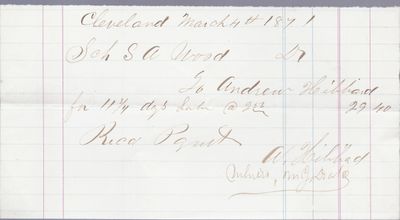 Cleveland March 4th 1871
Sch S A Wood Dr
To Andrew Hibbard
for 11 1/4 dys @ 29 40
Recd Paymt
A Hibbard